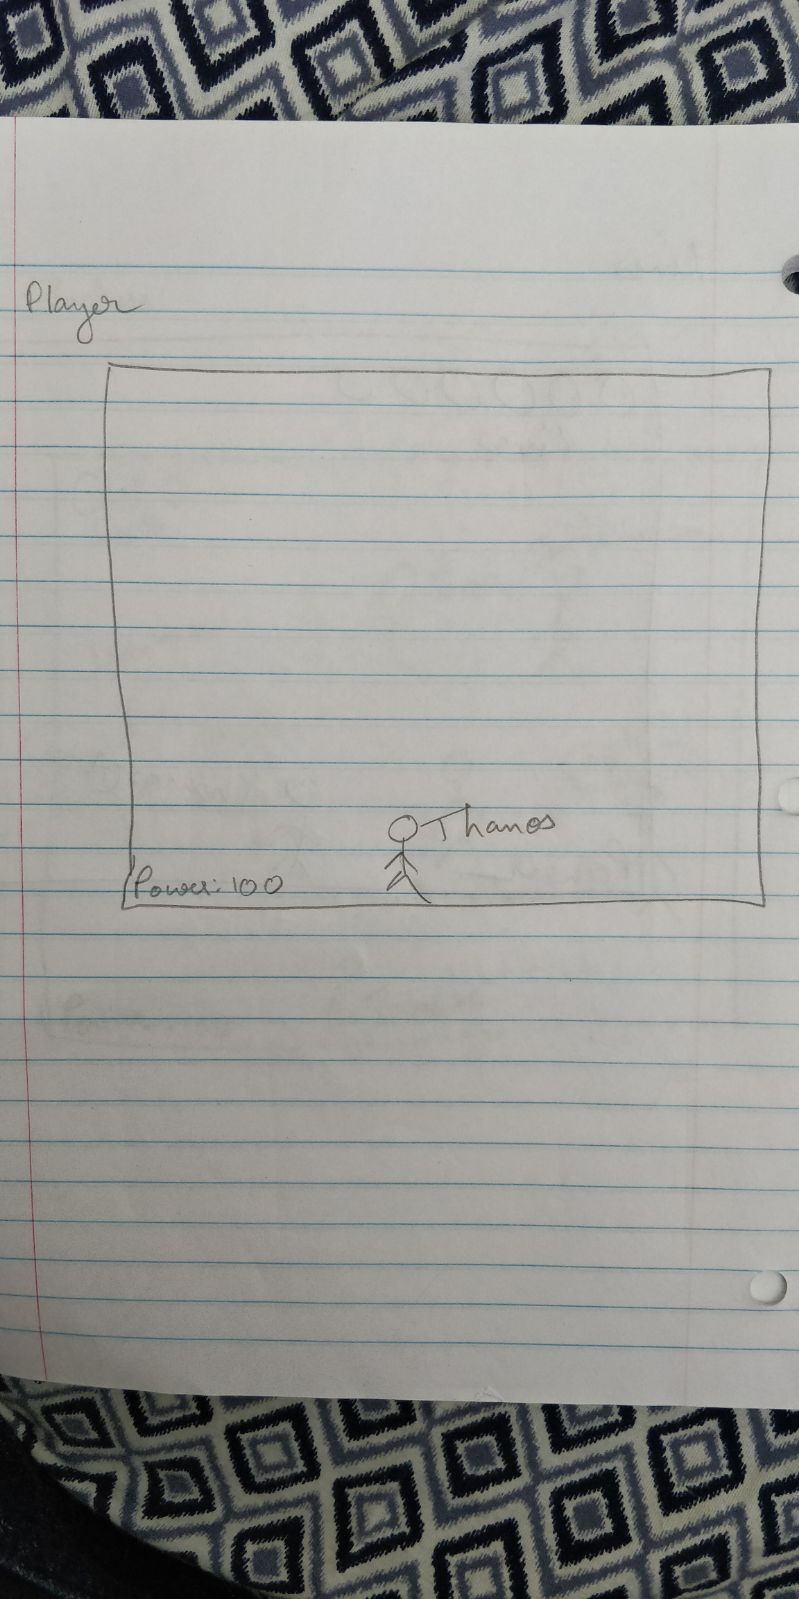 Player
Thanos
Power: 100